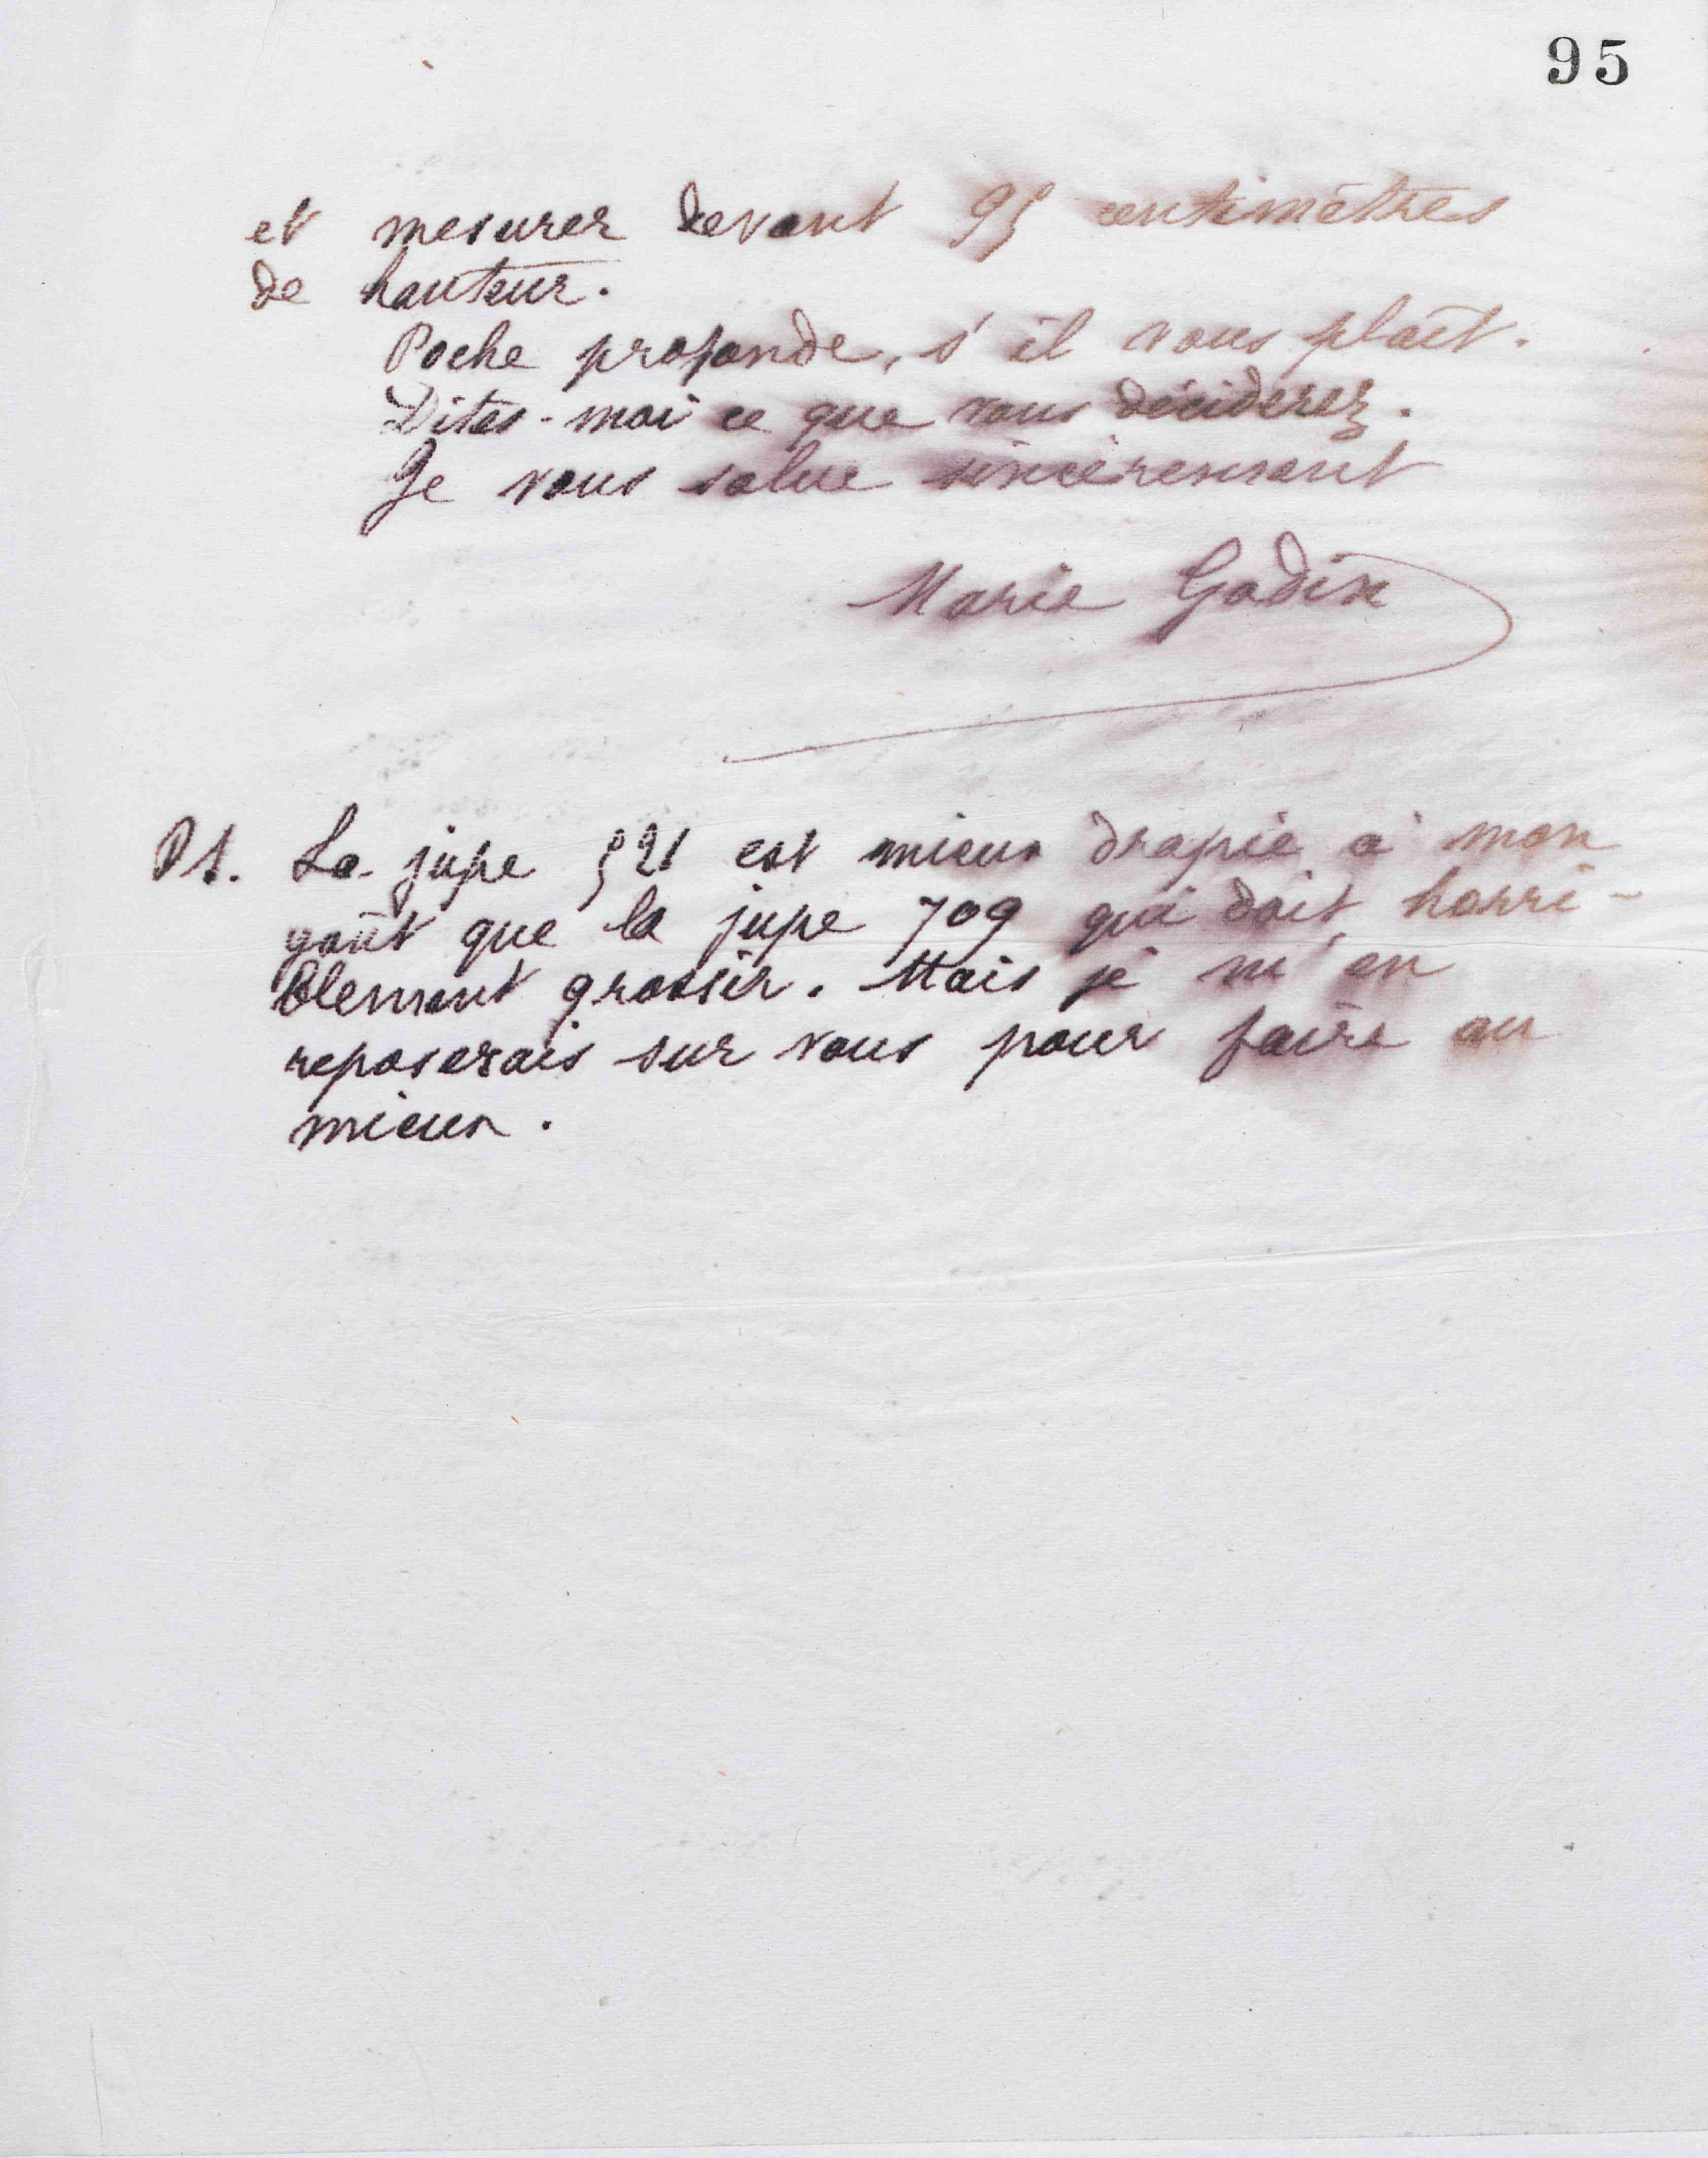 95
et mesurer devant 95 centimètres
de hauteur.
Poche profonde, s'il vous plaît.
Dites-moi ce que vous déciderez.
Je vous salue sincèrement
Marie Godin
PS. La jupe 521 est mieux drapée à mon
goût que la jupe 709 qui doit horri-
blement grossir. Mais je m'en
reposerais sur vous pour faire au
mieux.